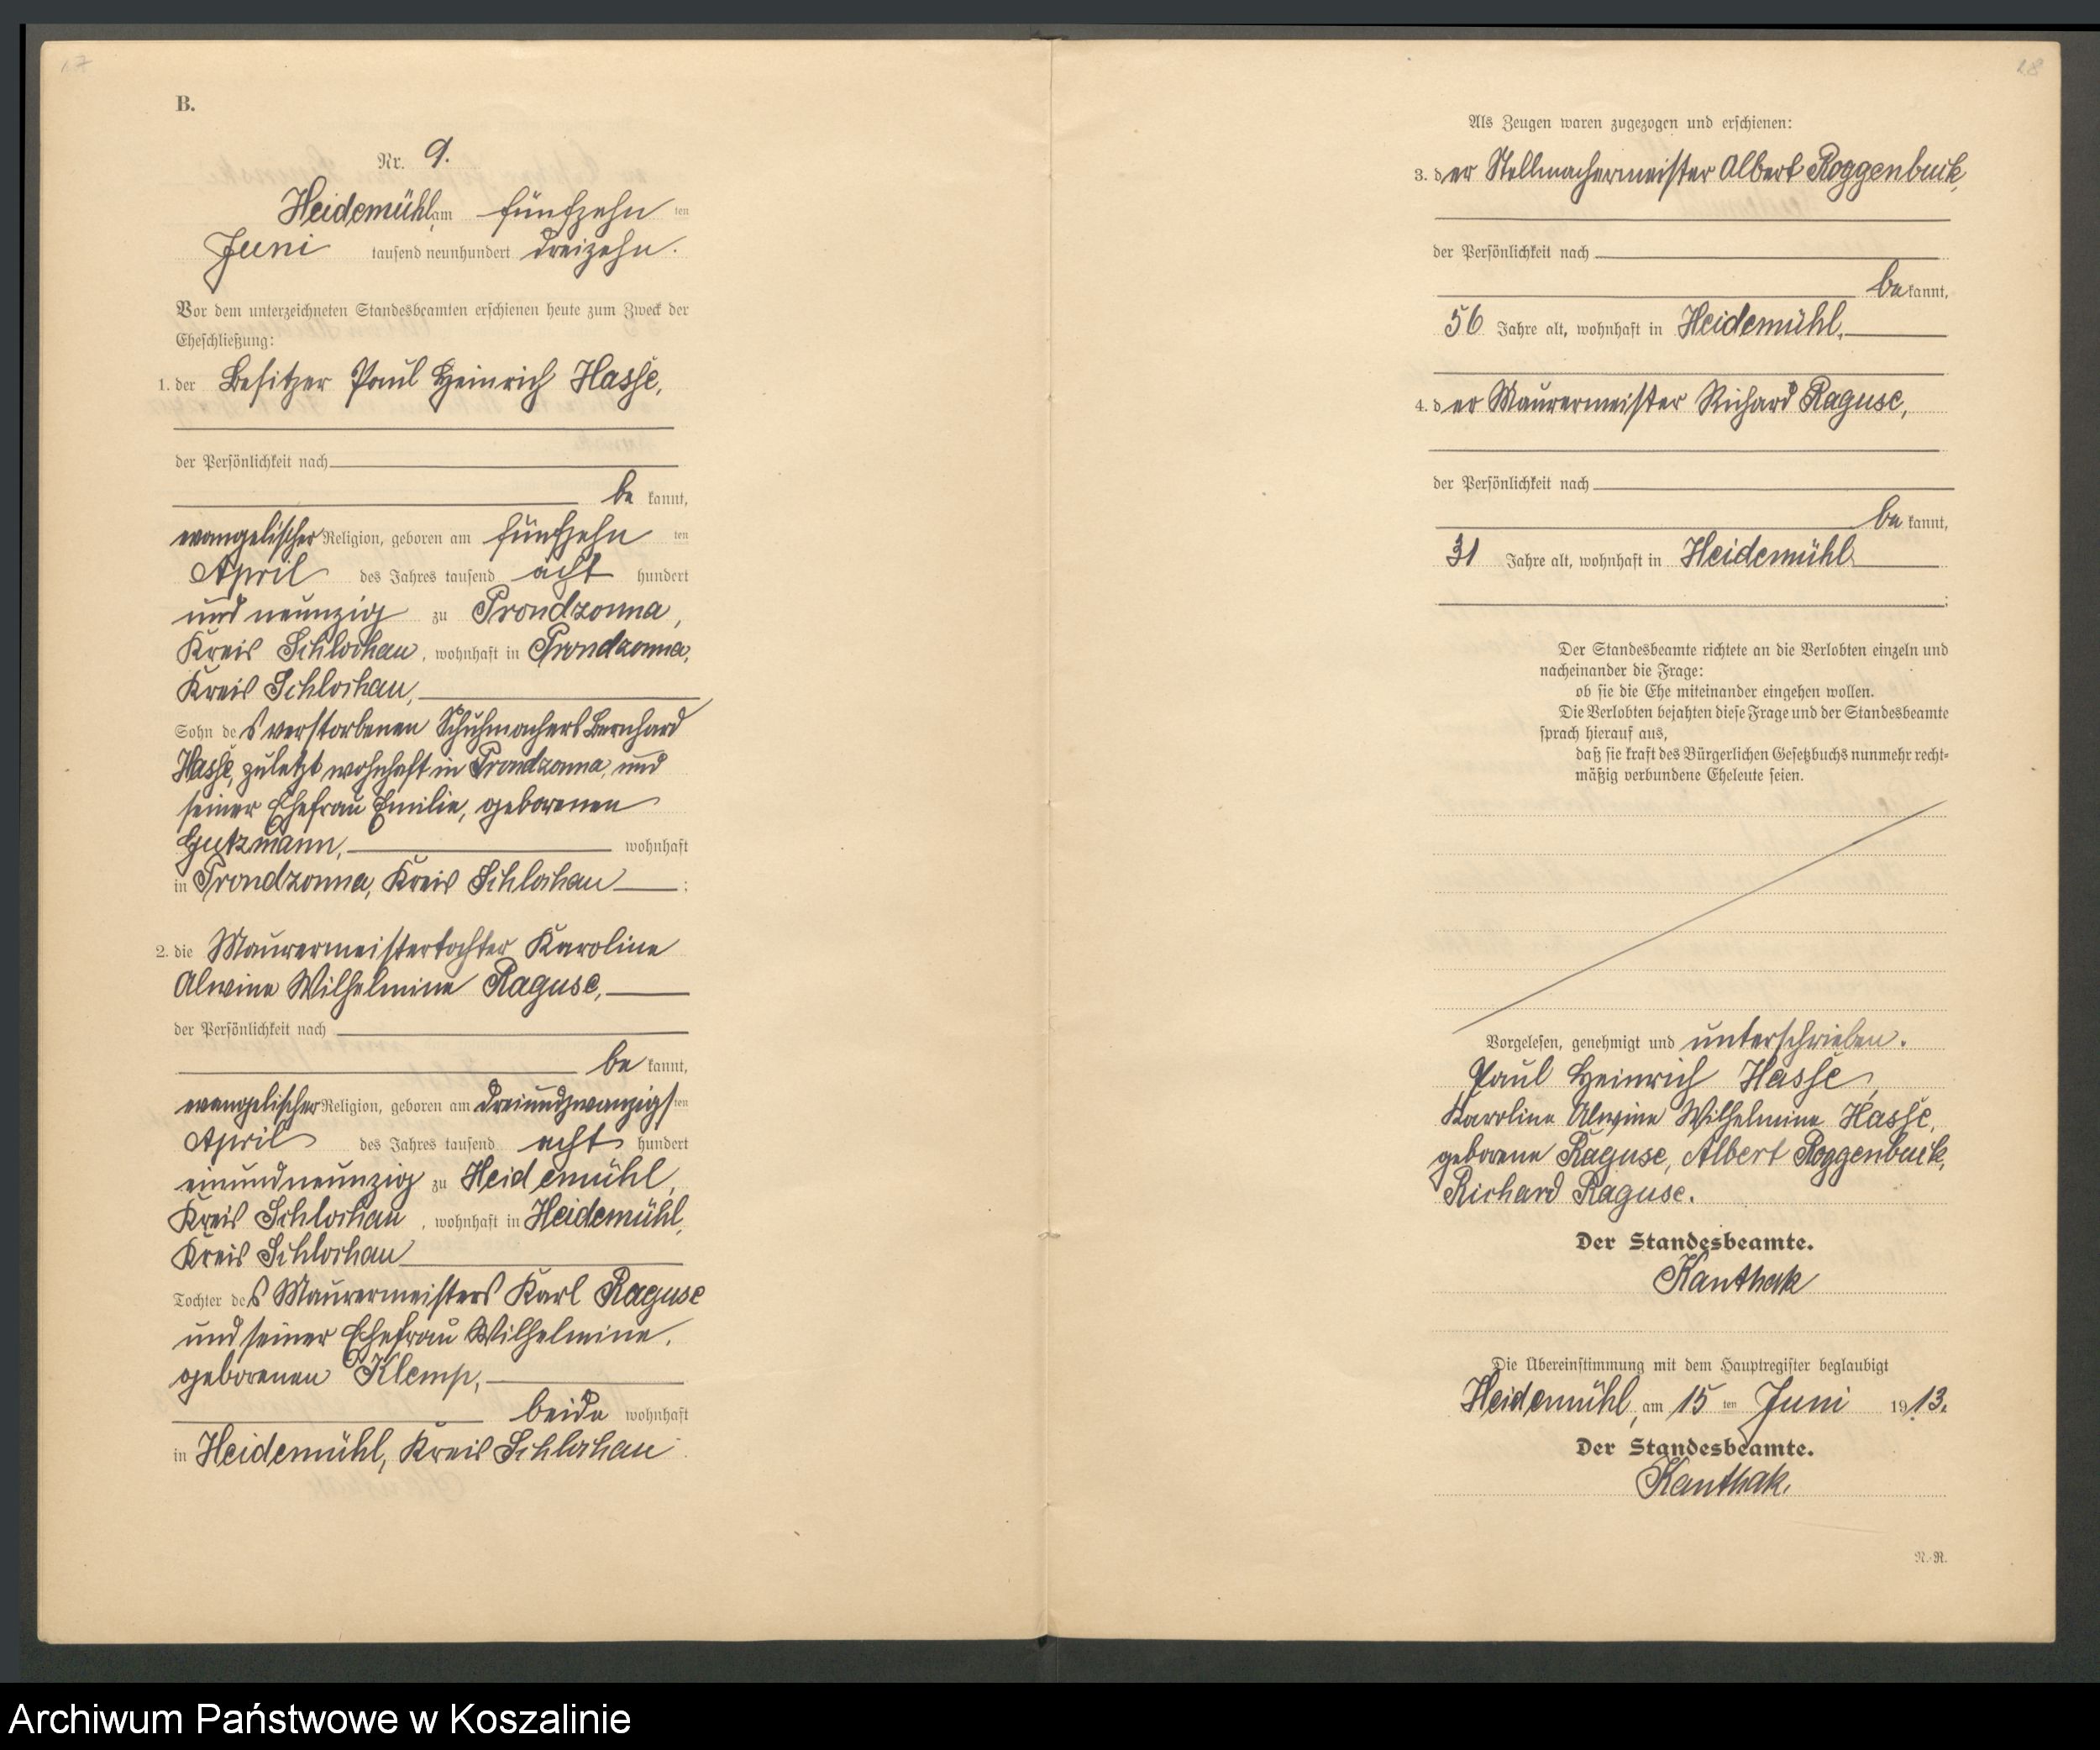 17
B.
Nr. 9.
Heidemühl, am fünfzehn ten
Juni tausend neunhundert dreizehn.
Vor dem unterzeichneten Standesbeamten erschienen heute zum Zweck der
Eheschließung:
1. der Besitzer Paul Heinrich Hasse,
der Persönlichkeit nach
be kannt,
evangelischer Religion, geboren am fünfzehn ten
April des Jahres tausend acht hundert
und neunzig zu Prondzonna,
Kreis Schlochau, wohnhaft in Prondzonna,
Kreis Schlochau,
Sohn des verstorbenen Schuhmachers Bernhard
Hasse, zuletzt wohnhaft in Prondzonna, und
seiner Ehefrau Emilie, geborenen
Gutzmann, wohnhaft
in Prondzonna, Kreis Schlochau ;
2. die Maurermeistertochter Karoline
Alwine Wilhelmine Raguse,
der Persönlichkeit nach
be kannt,
evangelischer Religion, geboren am dreiundzwanzigsten
April des Jahres tausend acht hundert
einundneunzig zu Heidemühl,
Kreis Schlochau, wohnhaft in Heidemühl,
Kreis Schlochau
Tochter des Maurermeisters Karl Raguse
und seiner Ehefrau Wilhelmine,
geborenen Klemp,
beide wohnhaft
in Heidemühl, Kreis Schlochau.
18
Als Zeugen waren zugezogen und erschienen:
3. der Stellmachermeister Albert Roggenbuck,
der Persönlichkeit nach
be kannt,
56 Jahre alt, wohnhaft in Heidemühl,
4. der Maurermeister Richard Raguse,
der Persönlichkeit nach
be kannt,
31 Jahre alt, wohnhaft in Heidemühl
;
Der Standesbeamte richtete an die Verlobten einzeln und
nacheinander die Frage:
ob sie die Ehe miteinander eingehen wollen.
Die Verlobten bejahten diese Frage und der Standesbeamte
sprach hierauf aus,
daß sie kraft des Bürgerlichen Gesetzbuchs nunmehr recht-
mäßig verbundene Eheleute seien.
Vorgelesen, genehmigt und unterschrieben.
Paul Heinrich Hasse,
Karoline Alwine Wilhelmine Hasse,
geborene Raguse, Albert Roggenbuck,
Richard Raguse.
Der Standesbeamte.
Kanthak
Die Übereinstimmung mit dem Hauptregister beglaubigt
Heidemühl, am 15 ten Juni 1913.
Der Standesbeamte.
Kanthak.
N.-R.
Archiwum Państwowe w Koszalinie